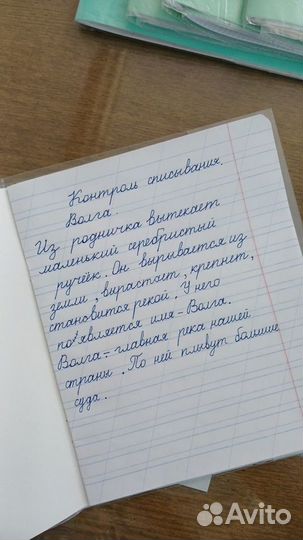 Контроль списывания.
Волга.
Из родничка вытекает
маленький серебристый
ручеёк. Он вырывается из
земли, вырастает, крепнет,
становится рекой. У него
появляется имя – Волга.
Волга – главная река нашей
страны. По ней плывут большие
суда.
Avito